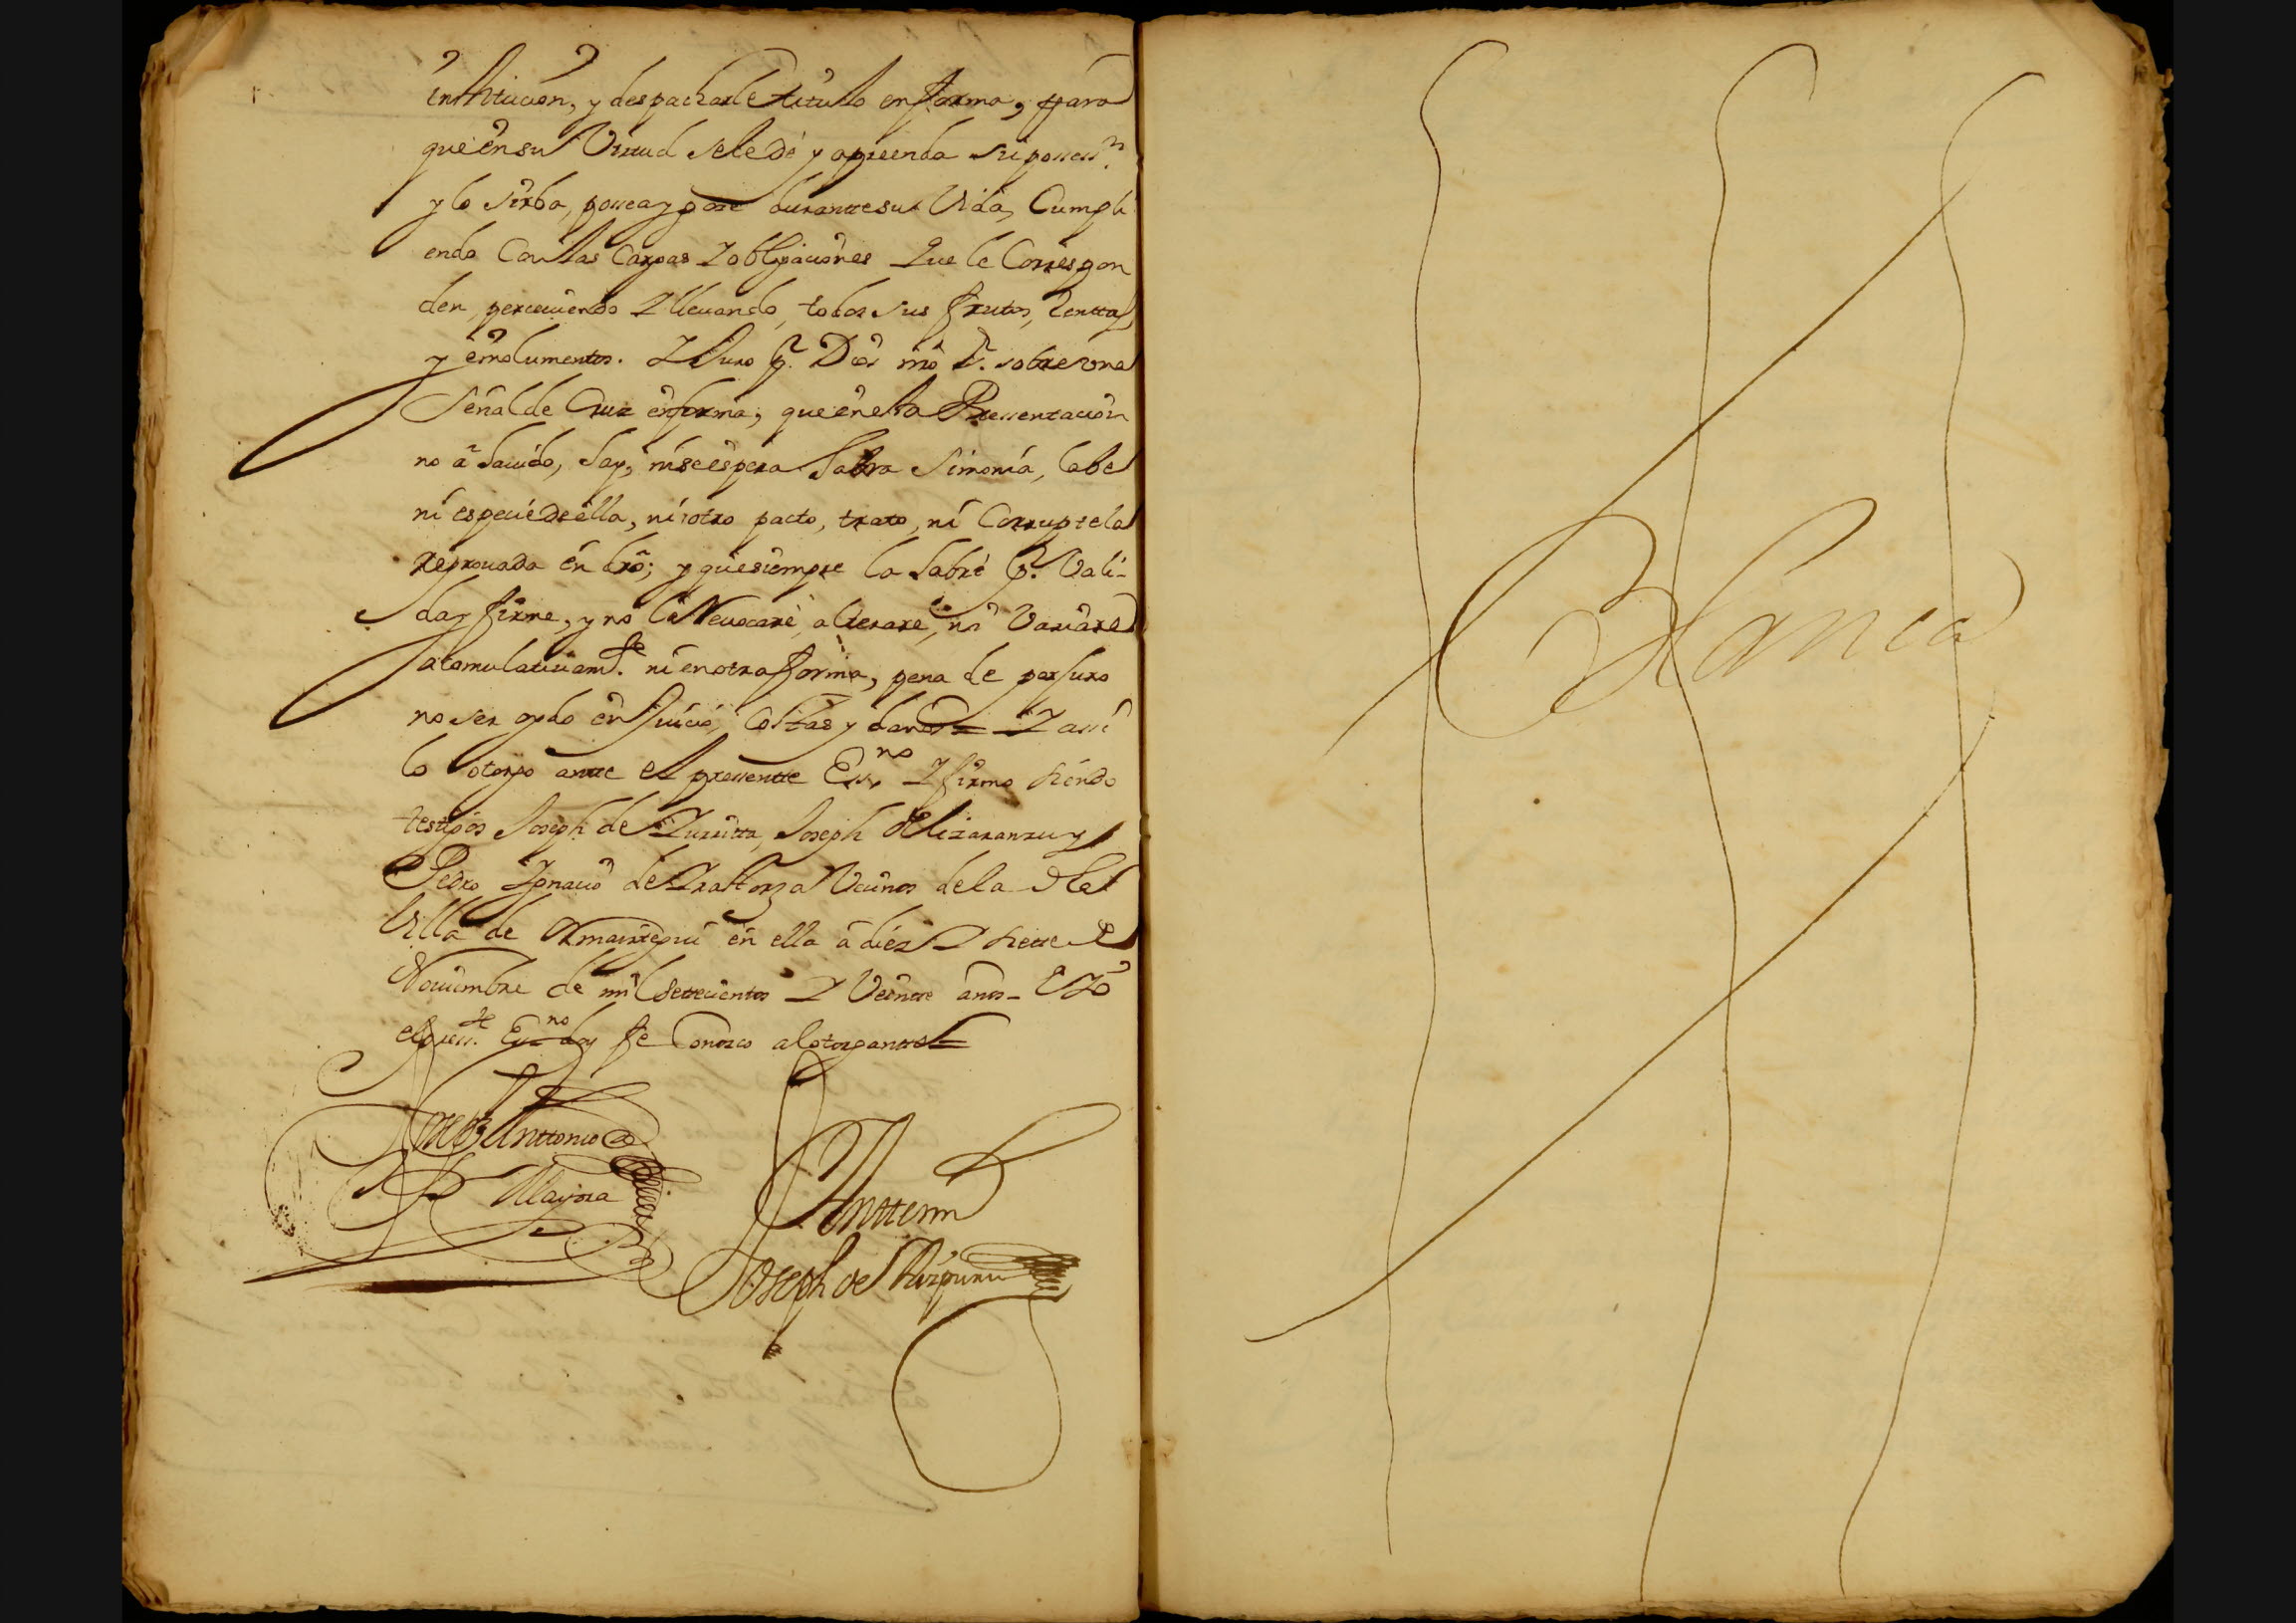 institucion, y despacharle titulo en forma, para
que en su Virtud se le dé y aprenda su posess.n
y lo sirba, possea y goze durantte su Vida, Cumpli
endo Con las Cargas Y obligaciones Que le Corrèspon
den, perceviendo Y llevando, todos sus frutos, Renttas,
y emolumentos. Y Juro p.r Dios nrô s.r sobre una
Señal de Cruz en forma, que en esta Pressentacion
no â havido, hay, ni se espera habra Simonía, labe
ni especie de ella, ni otro pacto, trato, ni Corruptela
reprouada en drô; y que siempre la habré p.r Vali-
da y firme, y no la Reuocaré, alterare, ni Variare
acomulativam.te ni en otra forma, pena de perjuro
no ser oydo en Juicio, Costas y daños = Y assi
lo otorgo antte el pressentte Ess.no Y firmo siendo
testigos Joseph de Zurutta, Joseph de Lizaranzu y
Pedro Ignacio de Vecinos de la dha
Villa de Ormaiztegui en ella â diez Y siette de
Noviembre de mil settecientos Y Veintte años - E Yo
el press.te Ess.no doy fe Conozco al otorgantte =
Joseph Anttonio de
Mayora
Antte mi
Joseph de Aizpuru
Blanca